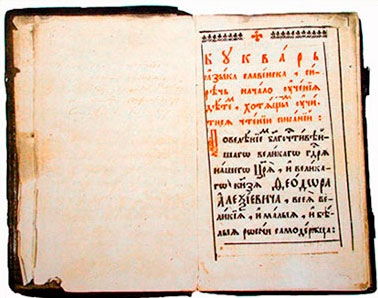 БУКВАРЬ
ꙗ҆зы́ка славе́нска, си́
рѣчь нача́ло ѹ҆че́нїѧ
дѣ́темъ, хотѧ́щымъ ѹ҆чи́
тисѧ чте́нїю писа́нїй:
Повелѣ́нїемъ благочⷭ҇ти́вѣй
шагѡ вели́кагѡ гдⷭ҇рѧ
на́шегѡ Цр҃ѧ̀, и҆ вели́ка
гѡ кнѧ́зѧ Ѳео́дѡра
Алеѯі́евича, всеѧ̀ ве
ли́кїѧ, и҆ ма́лыѧ, и҆ бѣ́
лыѧ рѡссі́и самоде́ржца: